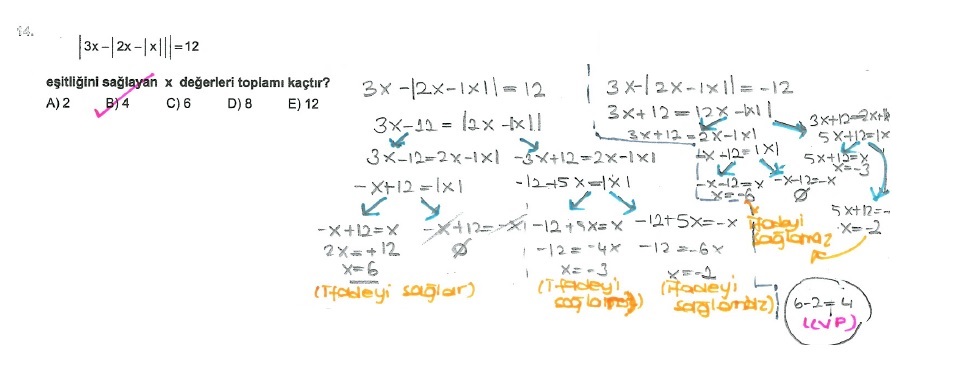 14.
|3x-|2x-|x|||=12
eşitliğini sağlayan x değerleri toplamı kaçtır?
A) 2 B) 4 C) 6 D) 8 E) 12
3x-|2x-|x||=12
3x-12=|2x-|x||
3x-12=2x-|x| -3x+12=2x-|x|
-x+12=|x| -12+5x=|x|
-x+12=x -x+12=-x -12+5x=x -12+5x=-x
2x=+12 ∅ -12=-4x -12=-6x
x=6 x=-3
(İfadeyi sağlar) (İfadeyi (İfadeyi
sağlamaz)
3x-|2x-|x||=-12
3x+12=|2x-|x||
3x+12=2x-|x| 3x+12=-2x+|x|
x+12=|x| 5x+12=|x
-x-12=x -x-12=-x 5x+12=x
x=-6 ∅ x=-3
İfadeyi 5x+12=-
sağlamaz x=-2
6-2=4
(CVP)